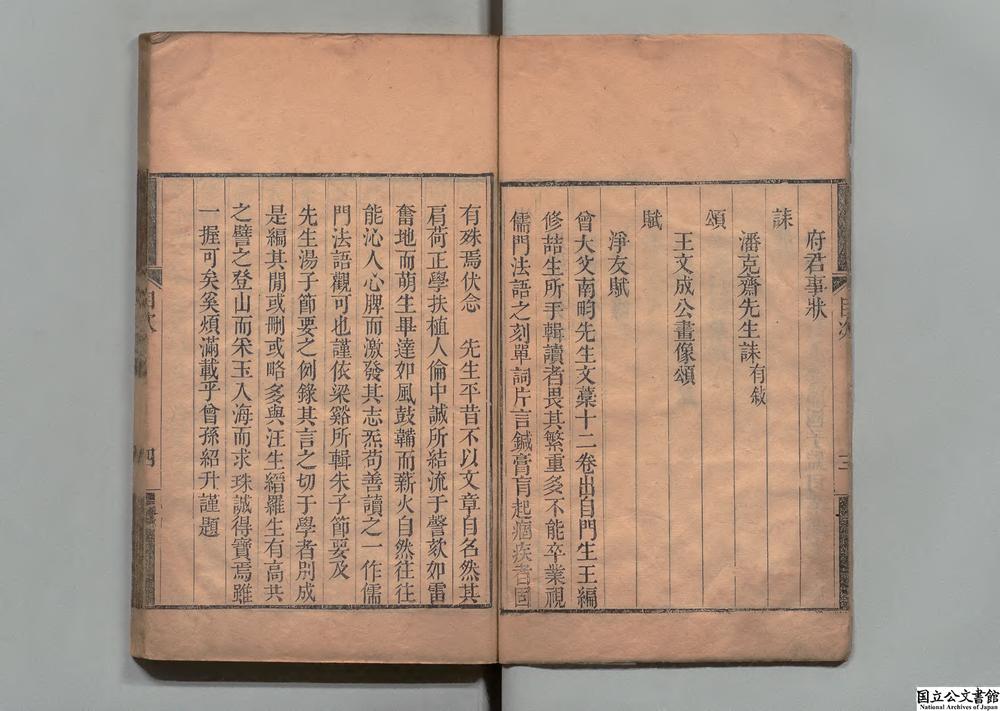 府君事狀
誄
潘克齋先生誄有敍
頌
王文成公畫像頌
賦
淨友賦
曾大父南畇先生文藁十二卷出自門生王編
修喆生所手輯讀者畏其繁重多不能卒業視
儒門法語之刻單詞片言鍼膏肓起痼疾者固
目次
三
有殊焉伏念　先生平昔不以文章自名然其
肩荷正學扶植人倫中誠所結流于謦欬如雷
奮地而萌生畢達如風鼓鞴而薪火自然往往
能沁人心脾而激發其志炁苟善讀之一作儒
門法語觀可也謹依梁谿所輯朱子節要及
先生湯子節要之例錄其言之切于學者別成
是編其閒或刪或略多與汪生縚羅生有高共
之譬之登山而釆玉入海而求珠誠得寶焉雖
一握可矣奚煩滿載乎曾孫紹升謹題
目次
四
国立公文書館
National Archives of Japan